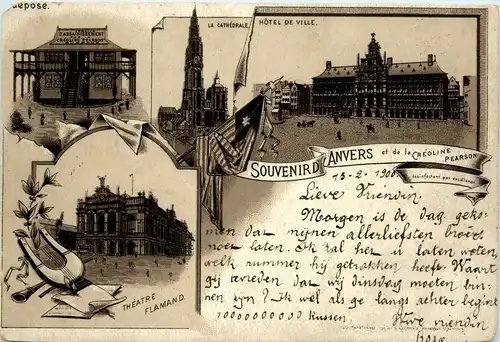 éposé.
D'ASSAINISSEMENT
CRÉOLINE PEARSON
LA CATHÉDRALE.
HÔTEL DE VILLE.
SOUVENIR D'ANVERS et de la CRÉOLINE PEARSON
désinfectant par excellence
13-2-1908
Lieve Vriendin
Morgen is de dag geko-
men dat mijnen allerliefsten broêr
moet loten. Ik zal het u laten weten,
welk nummer hij getrokken heeft. Waart
gij tevreden dat wij dinsdag moeten bin-
nen zijn? Ik wel als ge langs achter begint
1000000000 kussen.
Uwe vriendin
Rosa
THÉATRE
FLAMAND.